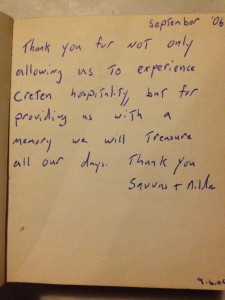 September '06
Thank you for not only
allowing us to experience
Creten hospitality, but for
providing us with a
memory we will treasure
all our days. Thank you
Savvas + Nilda